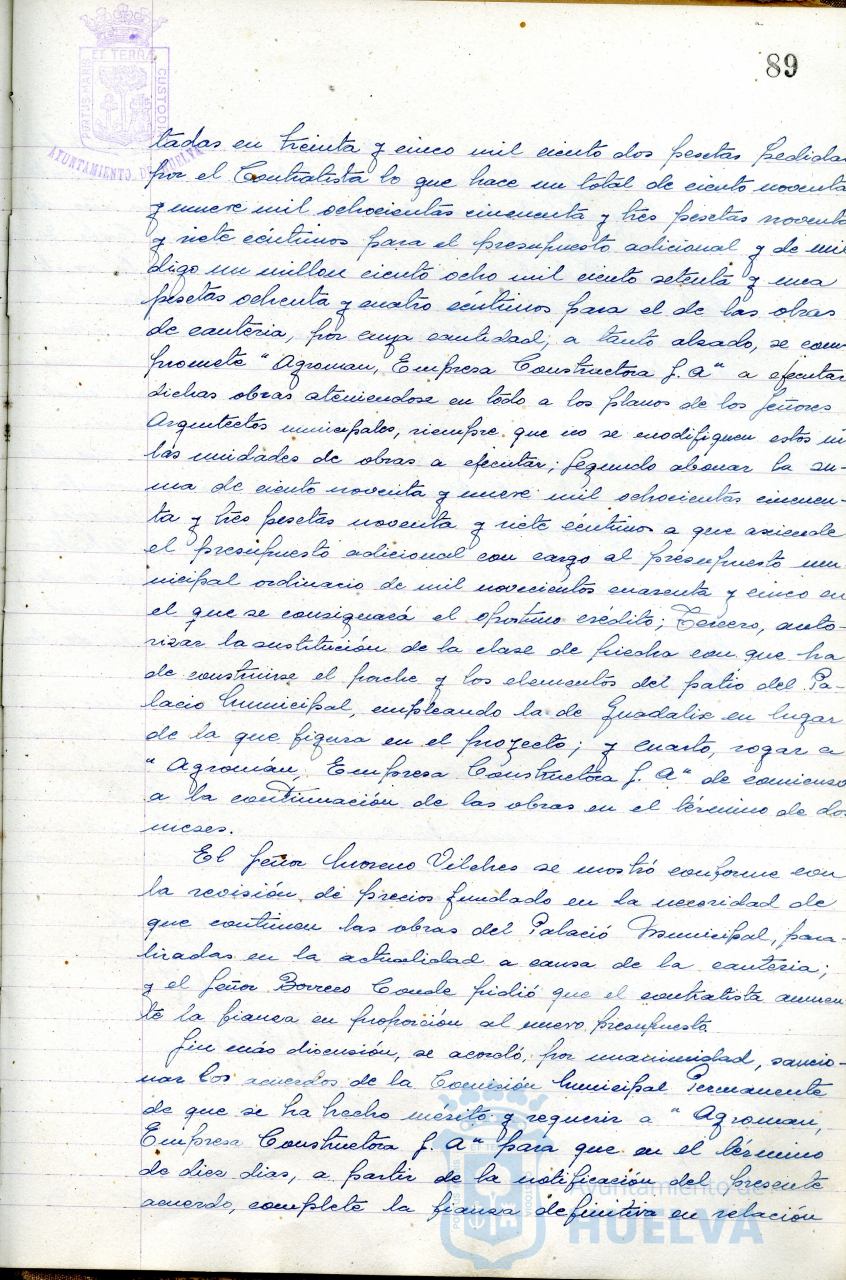 89
PORTUS MARIS ET TERRAE CUSTODIA
AYUNTAMIENTO DE HUELVA
tadas en treinta y cinco mil ciento dos pesetas pedidas
por el Contratista lo que hace un total de ciento noventa
y nueve mil ochocientas cincuenta y tres pesetas noventa
y siete céntimos para el presupuesto adicional y de mil
digo un millon ciento ocho mil ciento setenta y una
pesetas ochenta y cuatro céntimos para el de las obras
de cantería, por cuya cantidad, a tanto alzado, se com-
promete "Agroman, Empresa Constructora S. A" a ejecutar
dichas obras ateniendose en todo a los planos de los Señores
Arquitectos municipales, siempre que no se modifiquen estos ni
las unidades de obras a ejecutar; Segundo abonar la su-
ma de ciento noventa y nueve mil ochocientas cincuen-
ta y tres pesetas noventa y siete céntimos a que asciende
el presupuesto adicional con cargo al presupuesto mu
nicipal ordinario de mil novecientos cuarenta y cinco en
el que se consignará el oportuno crédito; Tercero, auto-
rizar la sustitución de la clase de piedra con que ha
de construirse el porche y los elementos del patio del Pa-
lacio Municipal, empleando la de Guadalix en lugar
de la que figura en el proyecto; y cuarto, rogar a
"Agromán, Empresa Constructora S. A" de comienzo
a la continuación de las obras en el término de dos
meses.
El Señor Moreno Vilches se mostró conforme con
la revisión de precios fundado en la necesidad de
que continuen las obras del Palació Municipal, para-
lizadas en la actualidad a causa de la cantería;
y el Señor Borrero Conde pidió que el contratista aumen
te la fianza en proporción al nuevo presupuesto
Sin más discusión, se acordó, por unanimidad, sancio-
nar los acuerdos de la Comisión Municipal Permanente
de que se ha hecho mérito y requerir a "Agroman,
Empresa Constructora S. A" para que en el término
de diez dias, a partir de la notificación del presente
acuerdo, complete la fianza definitiva en relación
Ayuntamiento de
HUELVA